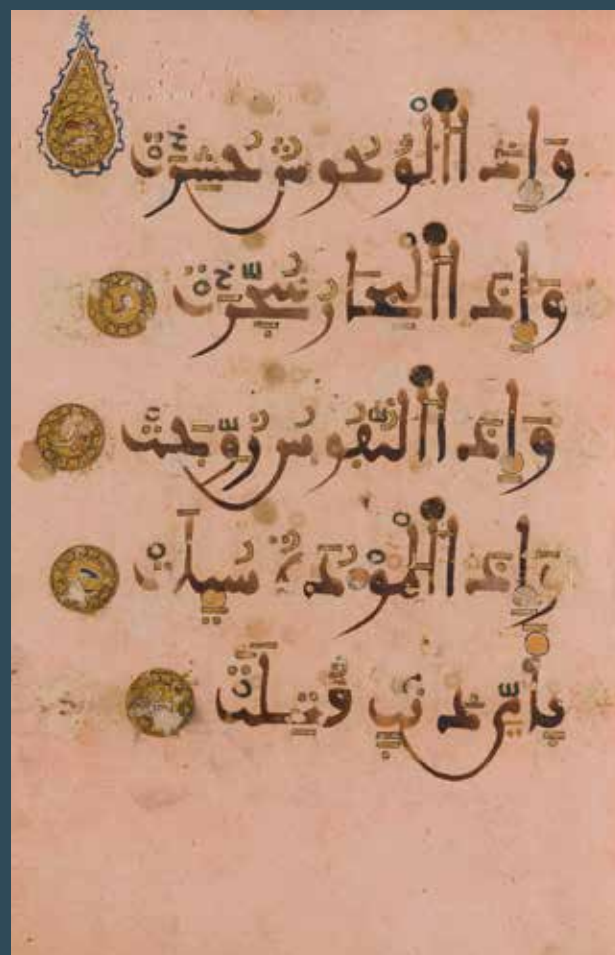 وَإِذَا ٱلْوُحُوشُ حُشِرَتْ
وَإِذَا ٱلْبِحَارُ سُجِّرَتْ
وَإِذَا ٱلنُّفُوسُ زُوِّجَتْ
وَإِذَا ٱلْمَوْءُدَةُ سُئِلَتْ
بِأَيِّ ذَنۢبٍ قُتِلَتْ